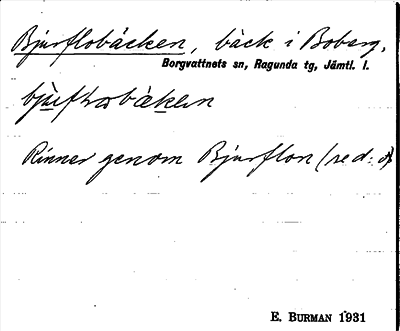 Bjurflobäcken, bäck i Boberg,
Borgvattnets sn, Ragunda tg, Jämtl. l.
Rinner genom Bjurflon (se d: o)
E. Burman 1931